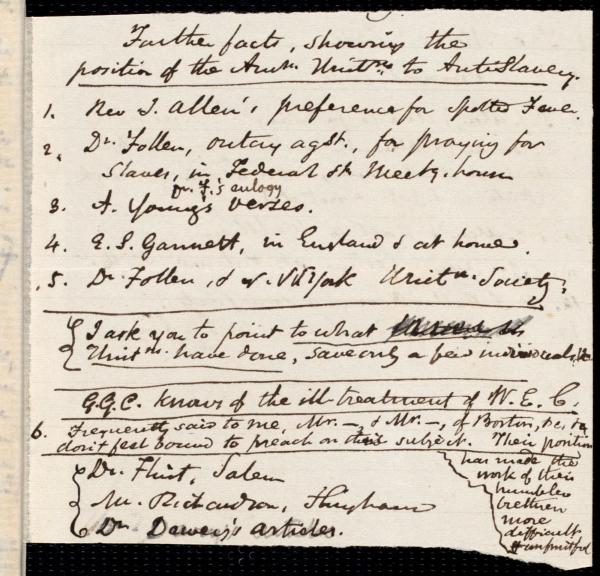 Further facts, showing the
position of the Amn. Unitns to AntiSlavery.
1. Rev J. Allen's preference for Spotted Fever.
2. Dr. Follen, outcry agst., for praying for
Slaves, in Federal St. Meetg. house
Dr. F.'s eulogy
3. A. Young's verses.
4. E. S. Gannett, in England & at home.
5. Dr. Follen, & N. York Unitn. Society.
I ask you to point to what
Unitns. have done, save only a few individuals,
G.G.C. knows of the ill-treatment of W. E. C.
6. Frequently said to me, Mr. —, & Mr. —, of Boston, &c,
don't feel bound to preach on this subject. Their position
has made the
work of their
humbler
brethren
more
difficult
& unfruitful
Dr. Flint, Salem
Mr. Richardson, Hingham
Dr. Dewey's articles.